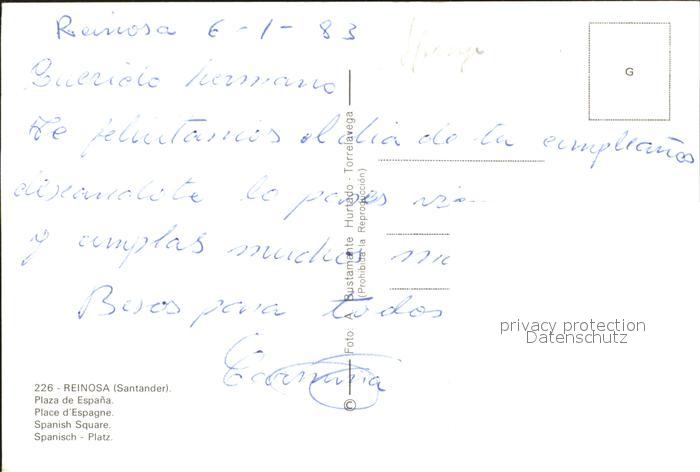 Reinosa 6-1-83
Querido hermano
Te felicitamos el dia de tu cumpleaños
deseandote lo pases vie
y cumplas muchos
Besos para todos
G
Foto: A. Bustamante Hurtado - Torrelavega
(Prohibida la Reproducción)
©
privacy protection
Datenschutz
226 - REINOSA (Santander).
Plaza de España.
Place d´Espagne.
Spanish Square.
Spanisch - Platz.